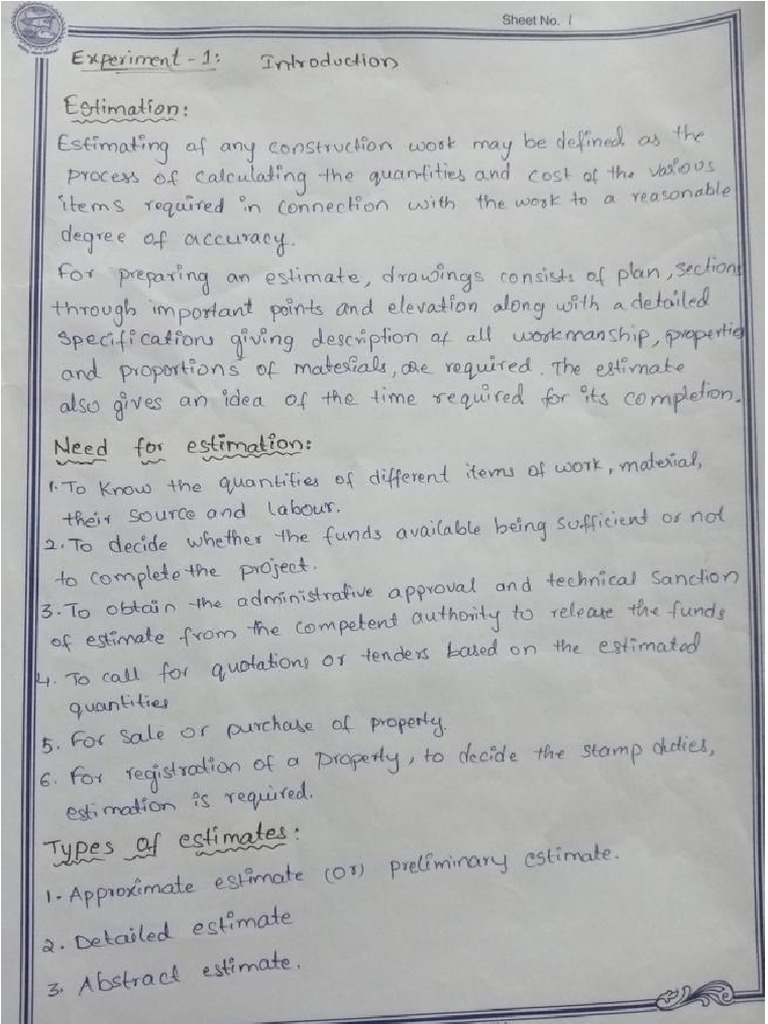 Sheet No. 1
Experiment - 1: Introduction
Estimation:
Estimating of any construction work may be defined as the
process of calculating the quantities and cost of the various
items required in connection with the work to a reasonable
degree of accuracy.
For preparing an estimate, drawings consists of plan, sections
through important points and elevation along with a detailed
specifications giving description of all workmanship, properties
and proportions of materials, are required. The estimate
also gives an idea of the time required for its completion.
Need for estimation:
1. To know the quantities of different items of work, material,
their source and labour.
2. To decide whether the funds available being sufficient or not
to complete the project.
3. To obtain the administrative approval and technical sanction
of estimate from the competent authority to release the funds
4. To call for quotations or tenders based on the estimated
quantities
5. For sale or purchase of property.
6. For registration of a property, to decide the stamp duties,
estimation is required.
Types of estimates:
1. Approximate estimate (or) preliminary estimate.
2. Detailed estimate
3. Abstract estimate.